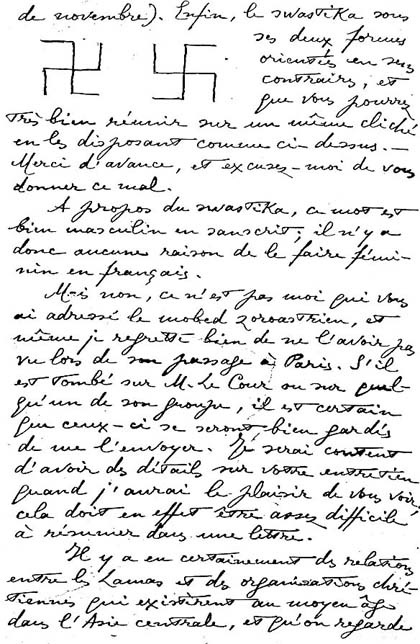 de novembre). Enfin, le swastika sous
ses deux formes
orientées en sens
contraire, et
que vous pourrez
très bien réunir sur un même cliché
en les disposant comme ci-dessus. —
Merci d'avance, et excusez-moi de vous
donner ce mal.
A propos du swastika, ce mot est
bien masculin en sanscrit ; il n'y a
donc aucune raison de le faire fémi-
nin en français.
Mais non, ce n'est pas moi qui vous
ai adressé le mobed zoroastrien, et
même je regrette bien de ne l'avoir pas
vu lors de son passage à Paris. S'il
est tombé sur M. Le Cour ou sur quel-
qu'un de son groupe, il est certain
que ceux-ci se seront bien gardés
de me l'envoyer. Je serai content
d'avoir des détails sur votre entretien
quand j'aurai le plaisir de vous voir,
cela doit en effet être assez difficile
à résumer dans une lettre.
Il y a eu certainement des relations
entre les Lamas et des organisations chré-
tiennes qui existèrent au moyen âge
dans l'Asie centrale, et qu'on regarde